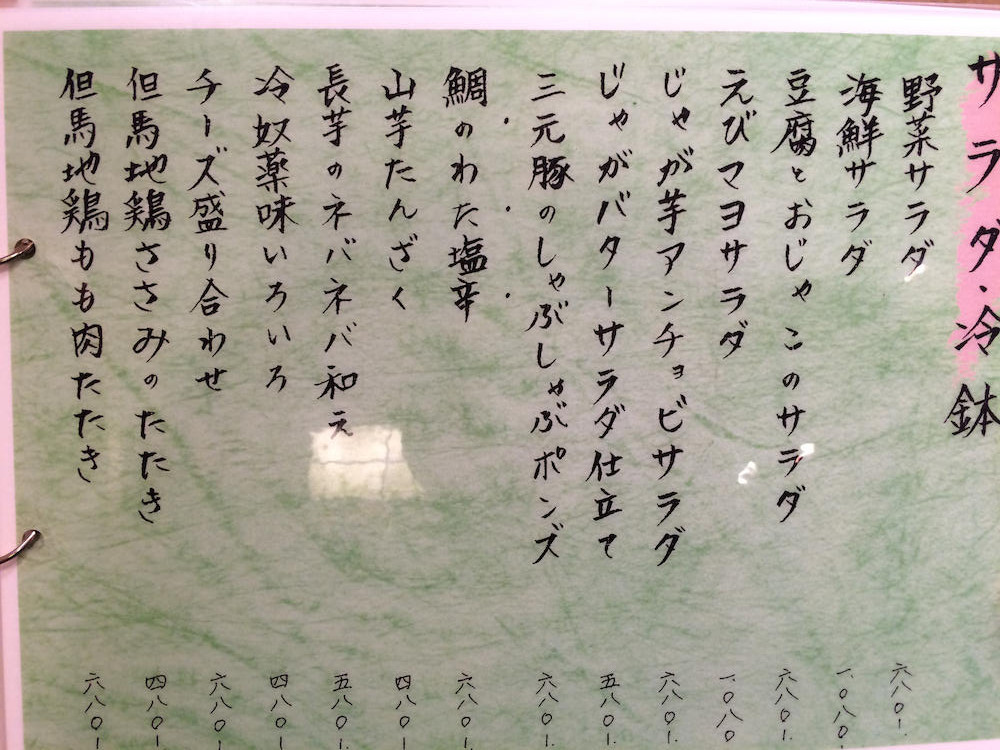 サラダ・冷鉢
野菜サラダ 六八〇ー
海鮮サラダ 一、〇八〇
豆腐とおじゃこのサラダ 六八〇ー
えびマヨサラダ 一、〇八〇
じゃが芋アンチョビサラダ 六八〇ー
じゃがバターサラダ仕立て 五八〇ー
三元豚のしゃぶしゃぶポンズ 六八〇ー
鯛のわた塩辛 六八〇ー
山芋たんざく 四八〇ー
長芋のネバネバ和え 五八〇ー
冷奴薬味いろいろ 四八〇ー
チーズ盛り合わせ 六八〇ー
但馬地鶏ささみのたたき 四八〇ー
但馬地鶏もも肉たたき 六八〇ー